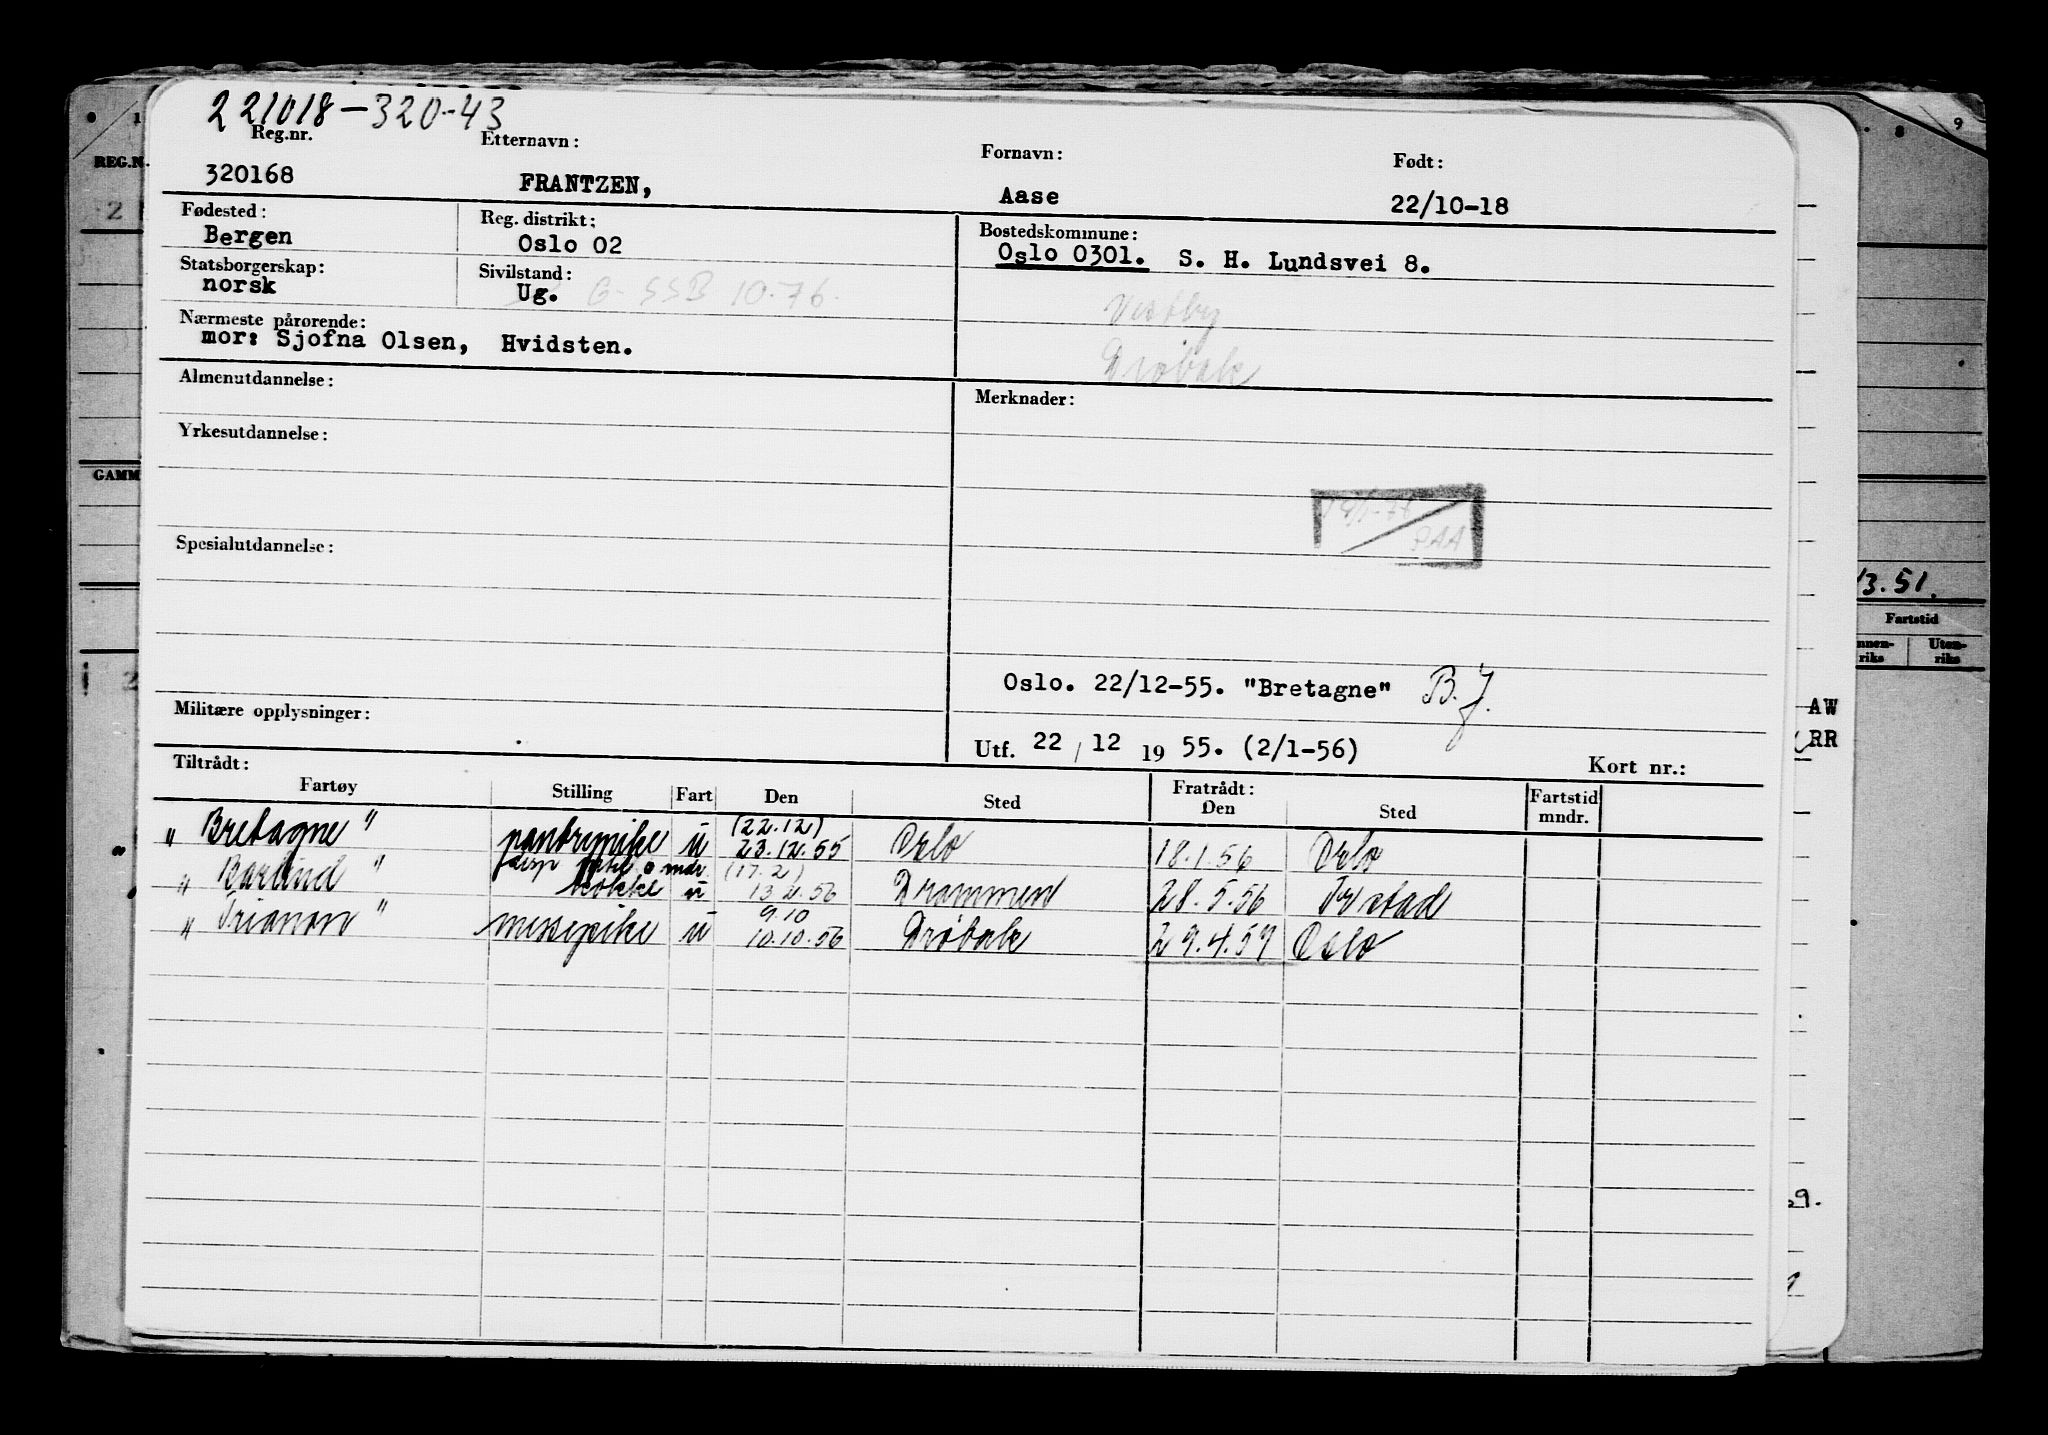 221018-320-43
Reg.nr. Etternavn: Fornavn: Født:
320168 FRANTZEN, Aase 22/10-18
Fødested: Reg. distrikt: Bostedskommune:
Bergen Oslo 02 Oslo 0301. S. H. Lundsvei 8.
Statsborgerskap: Sivilstand:
norsk Ug. G- SSB 10.76.
Vestby
Nærmeste pårørende:
mor: Sjofna Olsen, Hvidsten.
Drøbak
Almenutdannelse: Merknader:
Yrkesutdannelse:
PAA
Spesialutdannelse:
Oslo. 22/12-55. "Bretagne" B.J.
Militære opplysninger:
Utf. 22 / 12 19 55. (2/1-56)
Tiltrådt: Kort nr.:
Fartøy Stilling Fart Den Sted Fratrådt: Den Sted Fartstid mndr.
(22.12)
"Bretagne" pantrypike u 23.12.55 Oslo 18.1.56 Oslo
(17.2)
"Barlind" kokke u 13.2.56 Drammen 28.5.56 Frstad
9.10
"Trianon" messepike u 10.10.56 Drøbak 29.4.57 Oslo
REG.N
GAMM
8 9
13.51.
Fartstid
nnen-riks Uten-riks
AW
RR